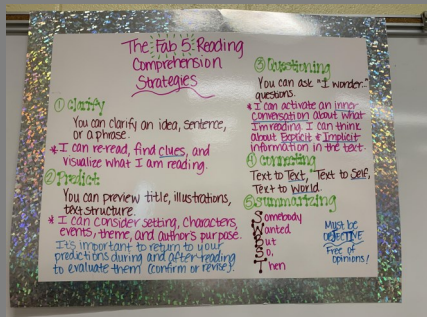 The Fab 5 Reading
Comprehension
Strategies
① Clarify
You can clarify an idea, sentence,
or a phrase.
* I can re-read, find clues, and
visualize what I am reading.
② Predict
You can preview title, illustrations,
text structure.
* I can consider setting, characters,
events, theme, and author's purpose.
It's important to return to your
predictions during and after reading
to evaluate them (confirm or revise).
③ Questioning
You can ask "I wonder..."
questions.
* I can activate an inner
conversation about what
I'm reading. I can think
about Explicit & Implicit
information in the text.
④ Connecting
Text to Text, Text to Self,
Text to World.
⑤ Summarizing
Somebody
Wanted
But
So,
Then
Must be
OBJECTIVE
Free of
opinions!